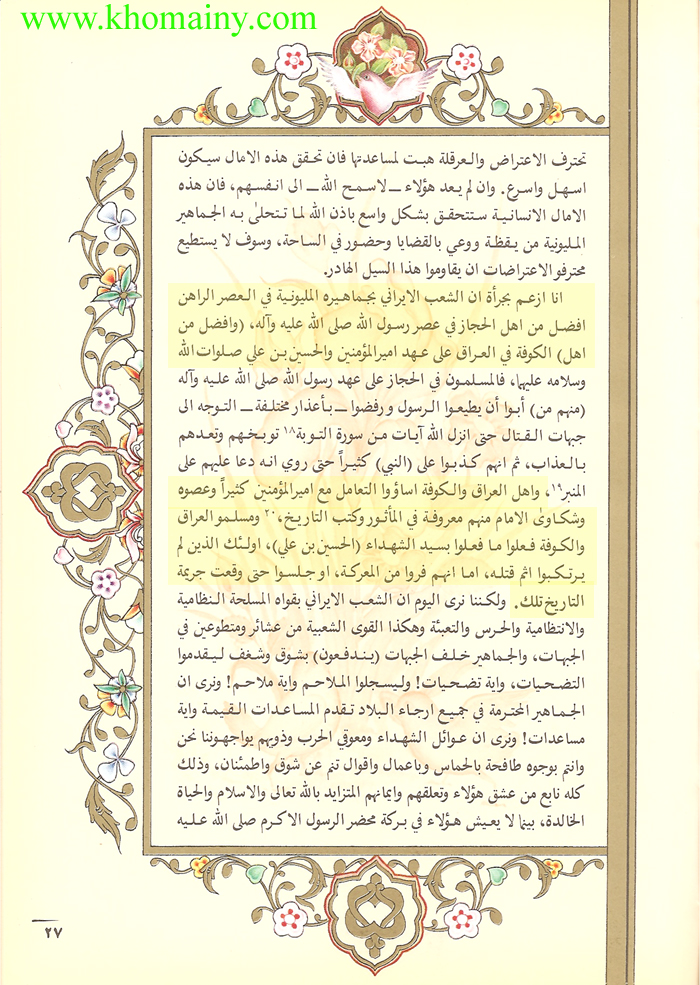 www.khomainy.com
تحترف الاعتراض والعرقلة هبت لمساعدتها فان تحقق هذه الامال سيكون
اسهل واسرع. وان لم يعد هؤلاء ــ لاسمح الله ــ الى انفسهم، فان هذه
الامال الانسانية ستتحقق بشكل واسع باذن الله لما تتحلىٰ به الجماهير
المليونية من يقظة ووعي بالقضايا وحضور في الساحة، وسوف لا يستطيع
محترفو الاعتراضات ان يقاوموا هذا السيل الهادر.
انا ازعم بجرأة ان الشعب الايراني بجماهيره المليونية في العصر الراهن
افضل من اهل الحجاز في عصر رسول الله صلى الله عليه وآله، (وافضل من
اهل) الكوفة في العراق على عهد اميرالمؤمنين والحسين بن علي صلوات الله
وسلامه عليهما، فالمسلمون في الحجاز على عهد رسول الله صلى الله عليه وآله
(منهم من) أبوا أن يطيعوا الرسول ورفضوا ــ بأعذار مختلفة ــ التوجه الى
جبهات القتال حتى انزل الله آيات من سورة التوبة١٨ توبخهم وتعدهم
بالعذاب، ثم انهم كذبوا على (النبي) كثيراً حتى روي انه دعا عليهم على
المنبر١٩، واهل العراق والكوفة اساؤوا التعامل مع اميرالمؤمنين كثيراً وعصوه
وشكاوىٰ الامام منهم معروفة في المأثور وكتب التاريخ،٢٠ ومسلمو العراق
والكوفة فعلوا ما فعلوا بسيد الشهداء (الحسين بن علي)، اولئك الذين لم
يرتكبوا اثم قتله، اما انهم فروا من المعركة، او جلسوا حتى وقعت جريمة
التاريخ تلك. ولكننا نرى اليوم ان الشعب الايراني بقواه المسلحة النظامية
والانتظامية والحرس والتعبئة وهكذا القوى الشعبية من عشائر ومتطوعين في
الجبهات، والجماهير خلف الجبهات (يندفعون) بشوق وشغف ليقدموا
التضحيات، واية تضحيات! وليسجلوا الملاحم واية ملاحم! ونرى ان
الجماهير المحترمة في جميع ارجاء البلاد تقدم المساعدات القيمة واية
مساعدات! ونرى ان عوائل الشهداء ومعوقي الحرب وذويهم يواجهوننا نحن
وانتم بوجوه طافحة بالحماس وباعمال واقوال تنم عن شوق واطمئنان، وذلك
كله نابع من عشق هؤلاء وتعلقهم وايمانهم المتزايد بالله تعالى والاسلام والحياة
الخالدة، بينما لا يعيش هؤلاء في بركة محضر الرسول الاكرم صلى الله عليه
٢٧